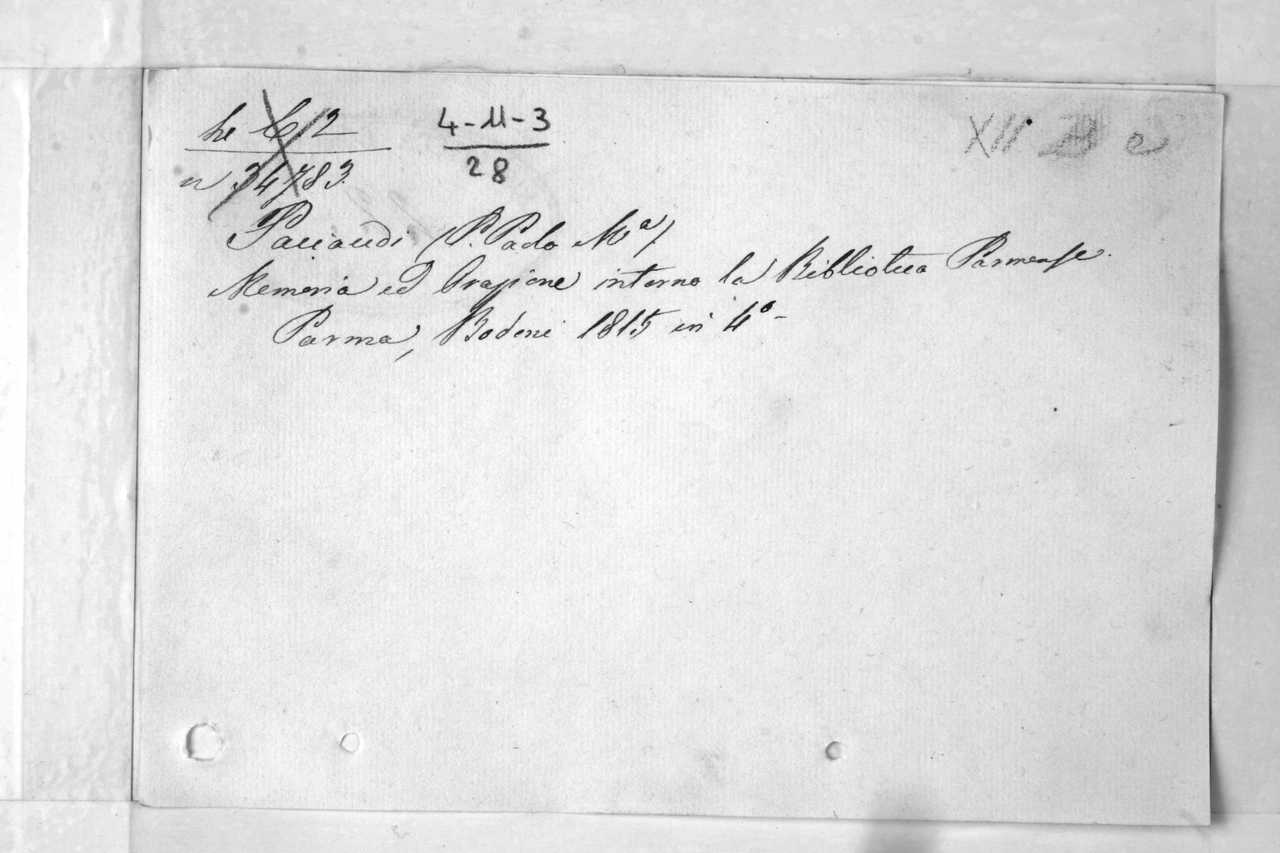 he C/2
n 34783.
4-11-3
28
XII B e
Paciaudi (P. Paolo Mª)
Memoria ed Orazione intorno la Biblioteca Parmense.
Parma, Bodoni 1815 in 4° -